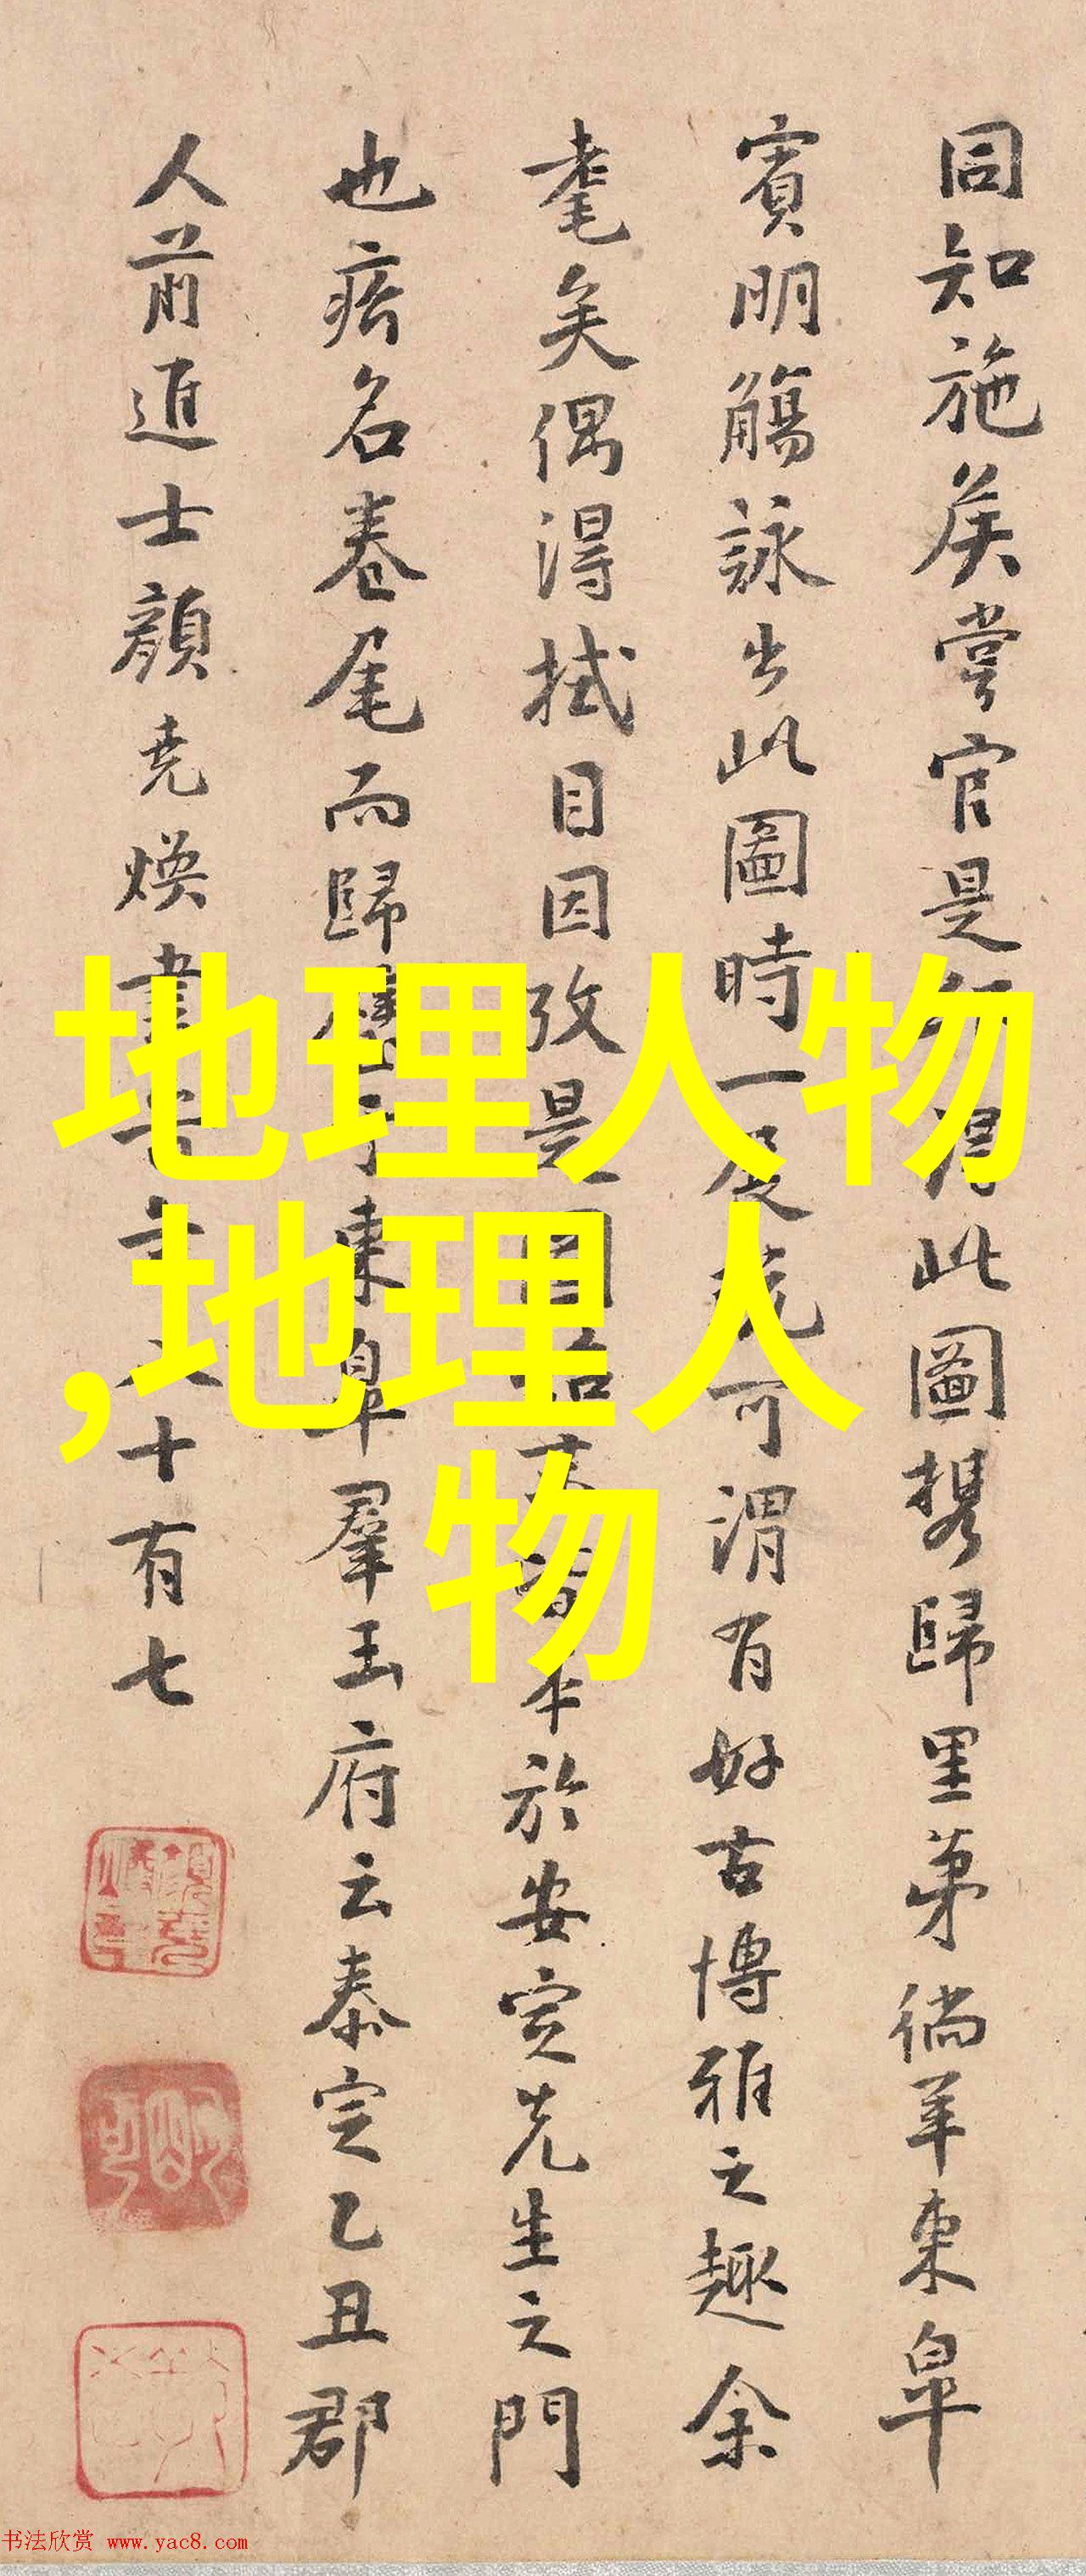 同知施矦嘗官是
此圖携歸里第徜羊東皐
賓明觴詠出此圖時一展
可謂有好古博雅之趣余
耄矣偶得拭目因攷是圖
本於安定先生之門
也瘩名卷尾而歸
東皐羣玉府云泰定乙丑郡
人前進士顔堯煥書
十有七
地理人物
,地理人
物
书法欣赏 www.yac8.com